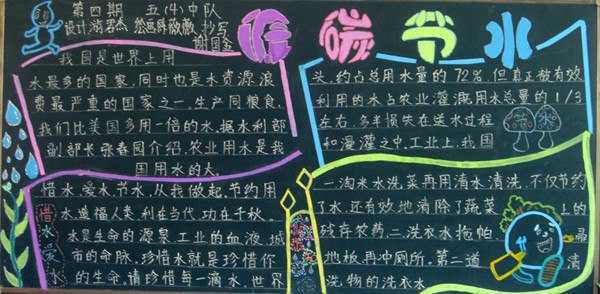 第四期 五(4)中队
设计 绘画 抄写
低碳节水
我国是世界上用
水最多的国家,同时也是水资源浪
费最严重的国家之一,生产同粮食,
我们比美国多用一倍的水,据水利部
副部长张春园介绍,农业用水是我
国用水的大
头,约占总用水量的72%,但真正被有效
利用的水占农业灌溉用水总量的1/3
左右,多半损失在送水过程
和漫灌之中,工业上,我国
惜水,爱水,节水,从我做起,节约用
水,造福人类,利在当代,功在千秋,
水是生命的源泉,工业的血液,城
市的命脉,珍惜水就是珍惜你
的生命,请珍惜每一滴水,世界
惜水爱水
一,淘米水洗菜再用清水清洗,不仅节约
了水,还有效地清除了蔬菜上的
残存农药,二,洗衣水拖帕帚
地板,再冲厕所,第二道清
洗物的洗衣水